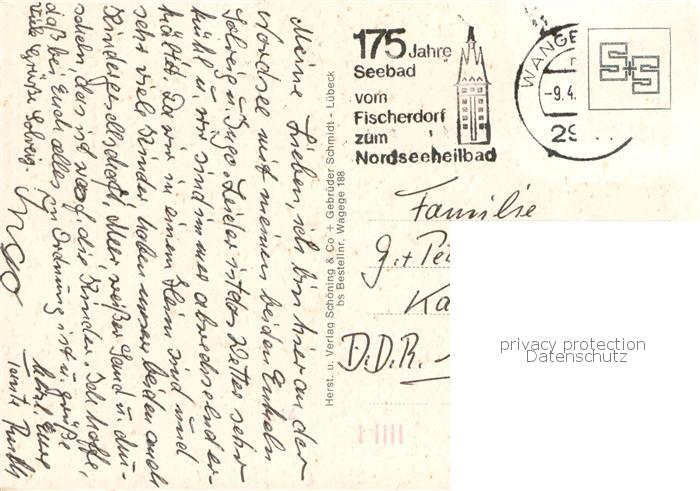 Meine Lieben, ich bin hier an der
Nordsee mit meinen beiden Enkeln
Solveig u. Ingo. Leider ist das Wetter sehr
kühl u. wir sind immer abwechselnd er-
kältet. Da wir in einem Heim sind und
sehr viel Kinder haben unsere beiden auch
Kindergesellschaft. Meer weißer Sand u. Mu-
scheln das ist was für die Kinder. Ich hoffe,
daß bei Euch alles in Ordnung ist u. grüße
Viele Grüße Solveig.
Ingo
Eure
Tante Ruth
Herst. u. Verlag Schöning & Co + Gebrüder Schmidt - Lübeck
bs Bestellnr. Wagege 188
175 Jahre
Seebad
vom
Fischerdorf
zum
Nordseeheilbad
WANGE
-9.4.
29
Familie
G. + Pe
Ka
D.D.R.
privacy protection
Datenschutz